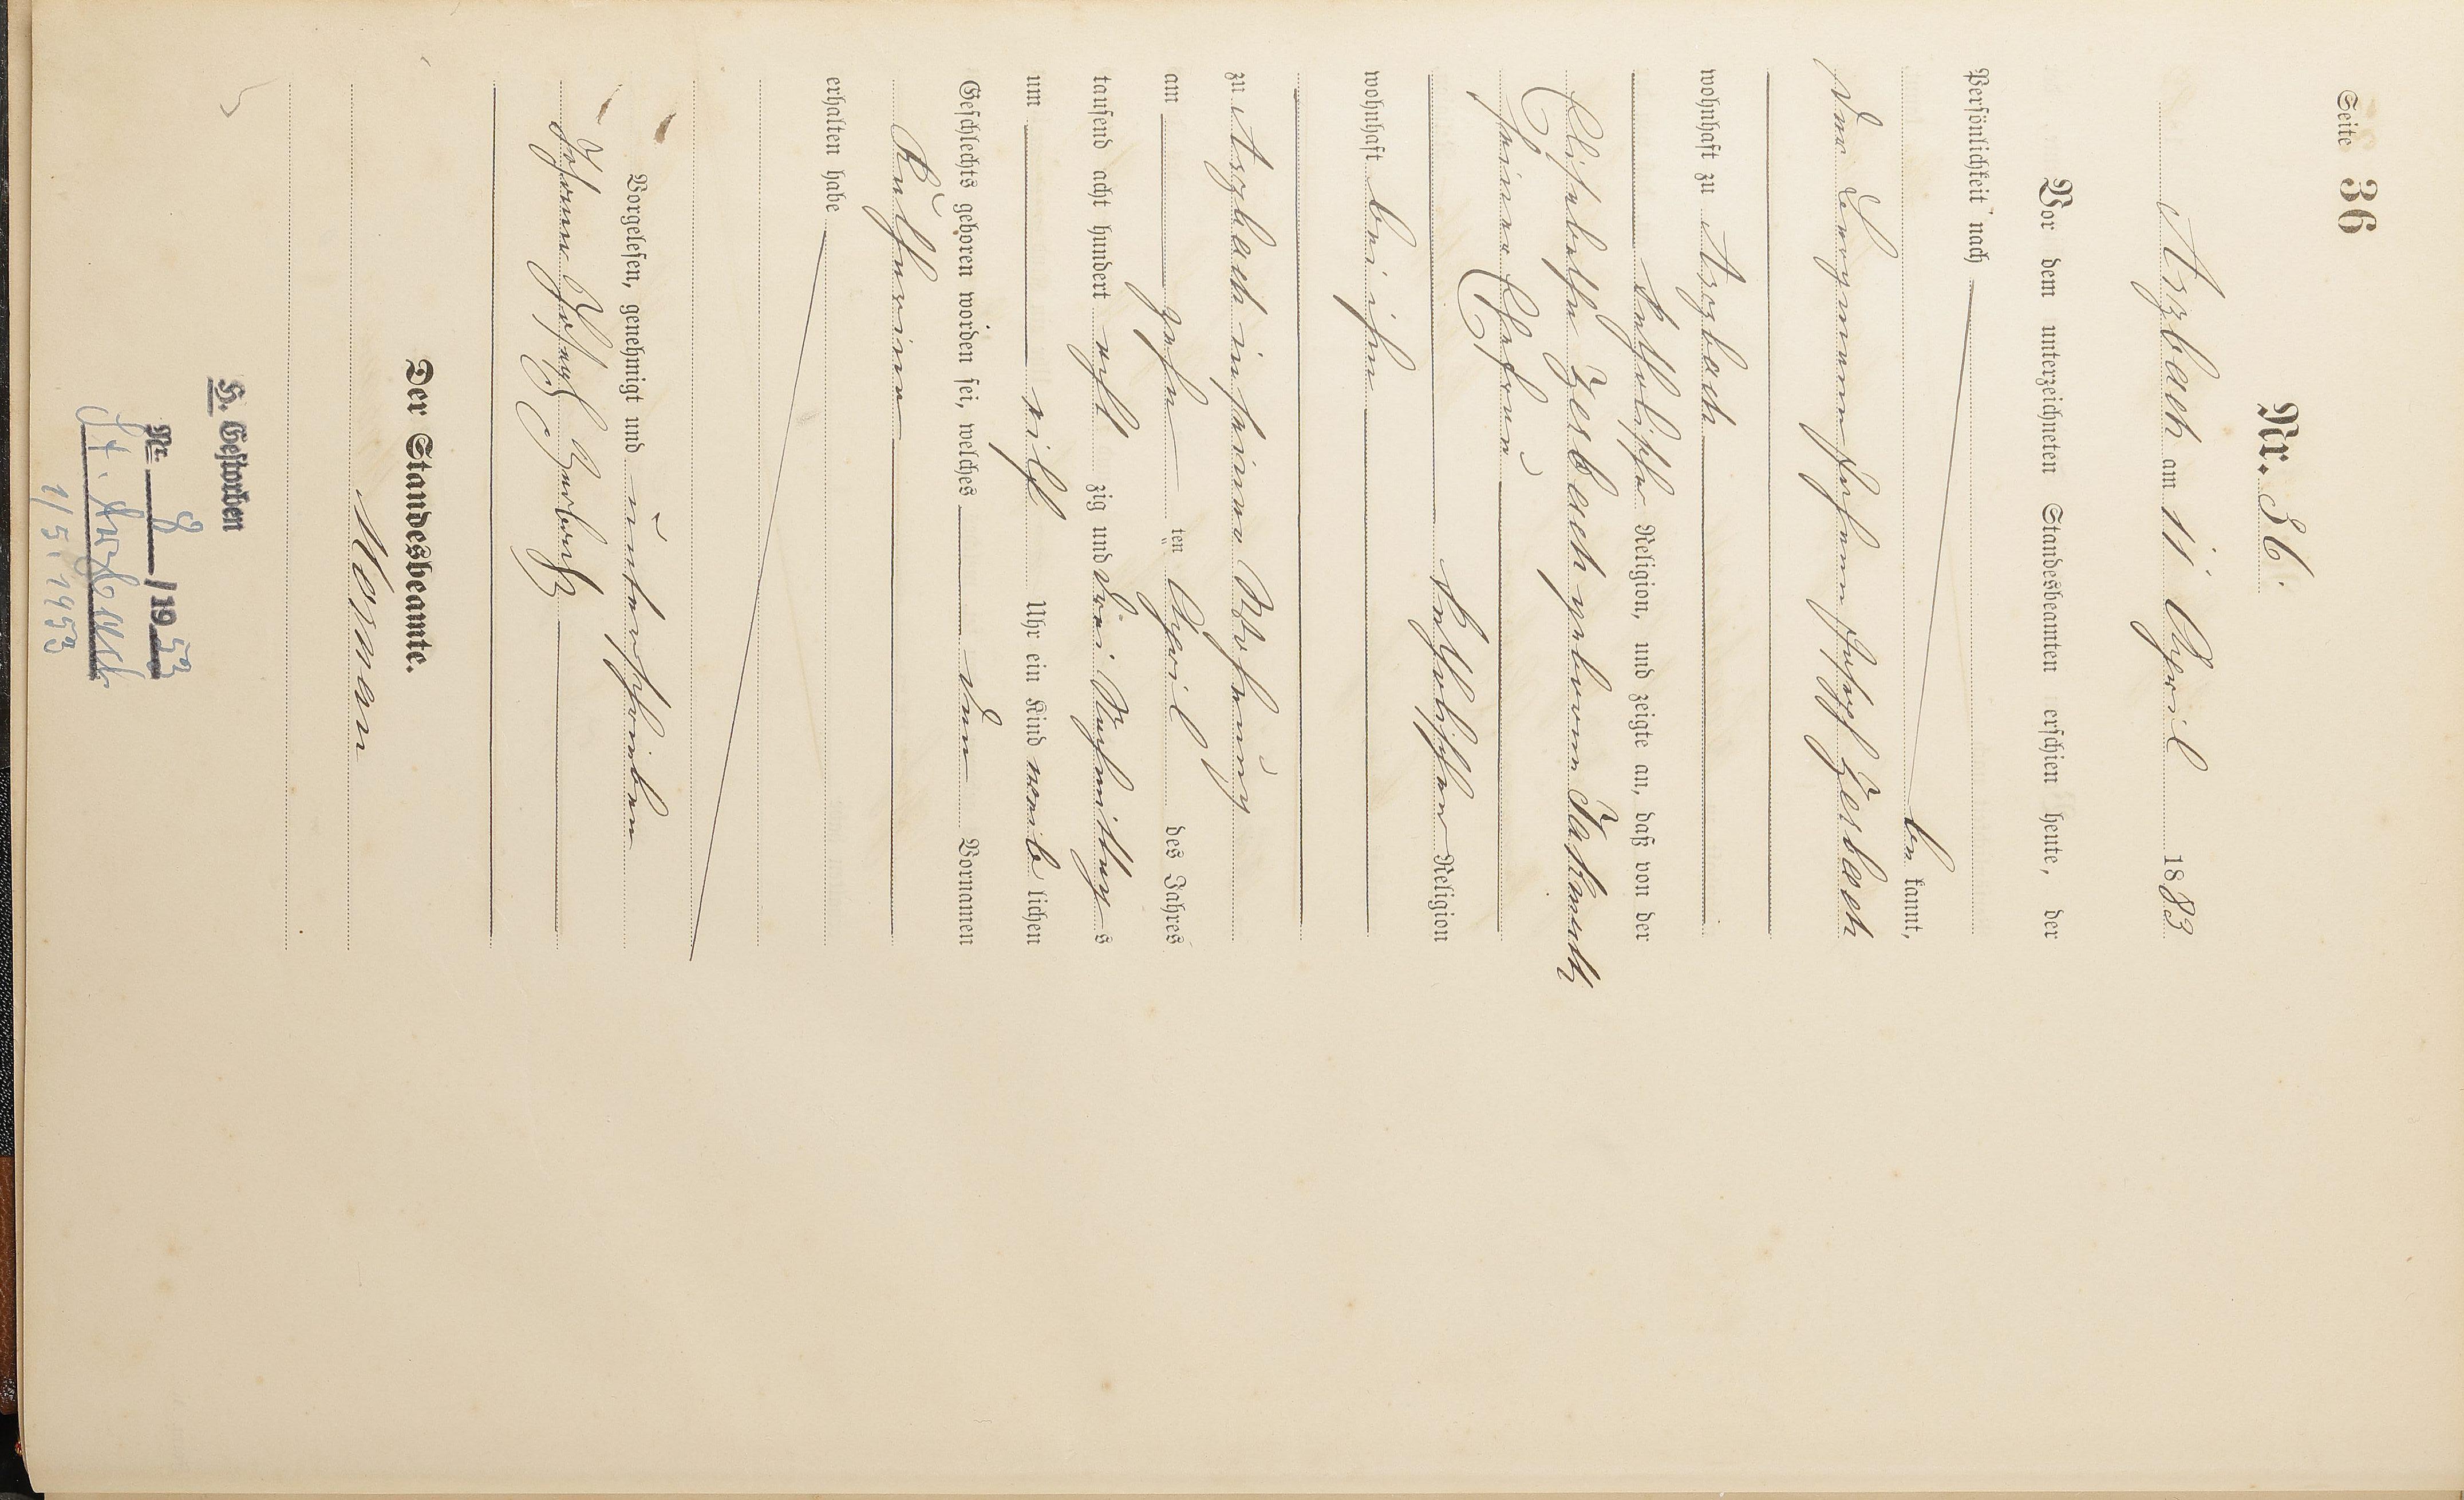 Seite 36
Nr. 36.
Arzbach am 11 April 1883
Vor dem unterzeichneten Standesbeamten erschien heute, der
Persönlichkeit nach
be kannt,
der Bergmann Johann Joseph Zerbach
wohnhaft zu Arzbach
katholischer Religion, und zeigte an, daß von der
Elisabetha Zerbach geborene
seiner Ehefrau
katholischer Religion
wohnhaft bei ihm
zu Arzbach in seiner Wohnung
am zehn ten April des Jahres
tausend acht hundert acht zig und drei Nachmittag s
um elf Uhr ein Kind weib lichen
Geschlechts geboren worden sei, welches den Vornamen
Katharina
erhalten habe
Vorgelesen, genehmigt und unterschrieben
Johann Joseph Zerbach
Der Standesbeamte.
H. Gestorben
Nr. 8 /1953
1/5. 1953